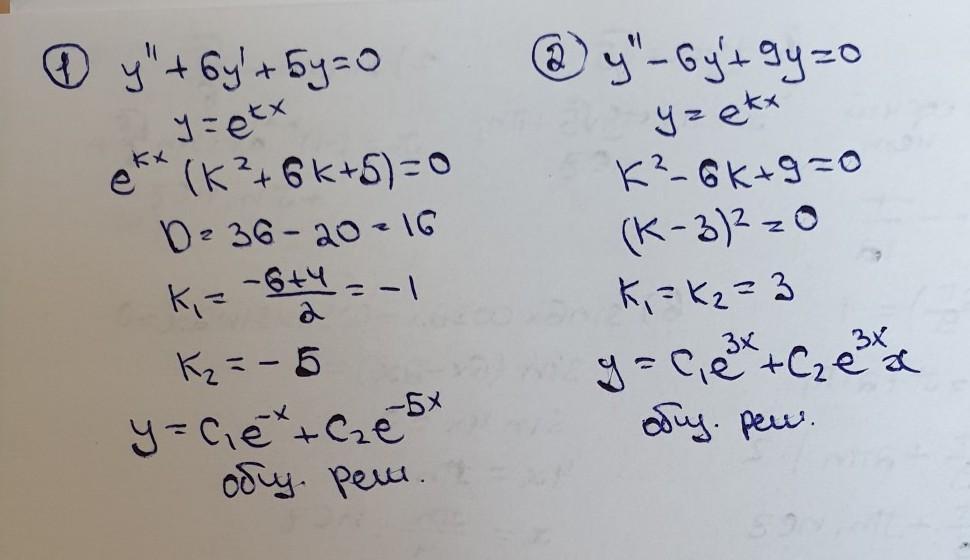 ① y'' + 6y' + 5y = 0
y = e^{kx}
e^{kx} (k² + 6k + 5) = 0
D = 36 - 20 = 16
k₁ = \frac{-6+4}{2} = -1
k₂ = -5
y = C₁e^{-x} + C₂e^{-5x}
общ. реш.
② y'' - 6y' + 9y = 0
y = e^{kx}
k² - 6k + 9 = 0
(k - 3)² = 0
k₁ = k₂ = 3
y = C₁e^{3x} + C₂e^{3x}x
общ. реш.